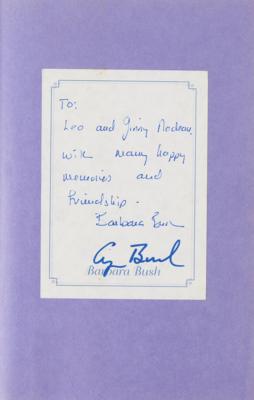 To:
Leo and Ginny
With many happy
memories and
friendship -
Barbara Bush
G Bush
Barbara Bush